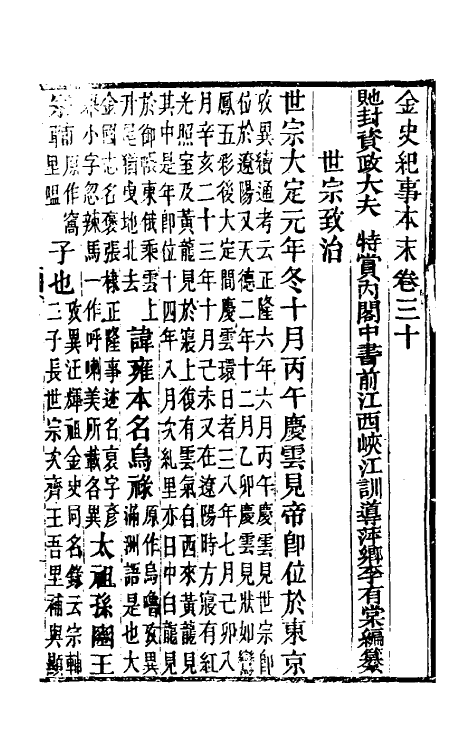 金史紀事本末卷三十
貤封資政大夫 特賞內閣中書前江西峽江訓導萍鄉李有棠編纂
世宗致治
世宗大定元年冬十月丙午慶雲見帝即位於東京
攷異續通考云正隆六年六月丙午慶雲見世宗即
位於遼陽又天德二年十二月乙卯慶雲見狀如鸞
鳳五彩後大定間慶雲環日者三八年七月己卯八
月辛亥二十三年十月己未又在遼陽時方寢有紅
光照室及黃龍見於寢上復有雲氣自西來黃龍見
其中是年即位十四年八月次糺里亦日中白龍見
於御帳東俄乘雲上
升是猶曳地北去
諱雍本名烏祿
原作烏魯攷異
滿洲語是也大
金國志名褒張棣正隆事迹名裒字彥
舉小字忽辣馬一作呼喇美所載各異
太祖孫豳王
宗
原作窩
里嗢
子也
攷異汪輝祖金史同名錄云宗輔
二子長世宗次齊王吾里補與顯